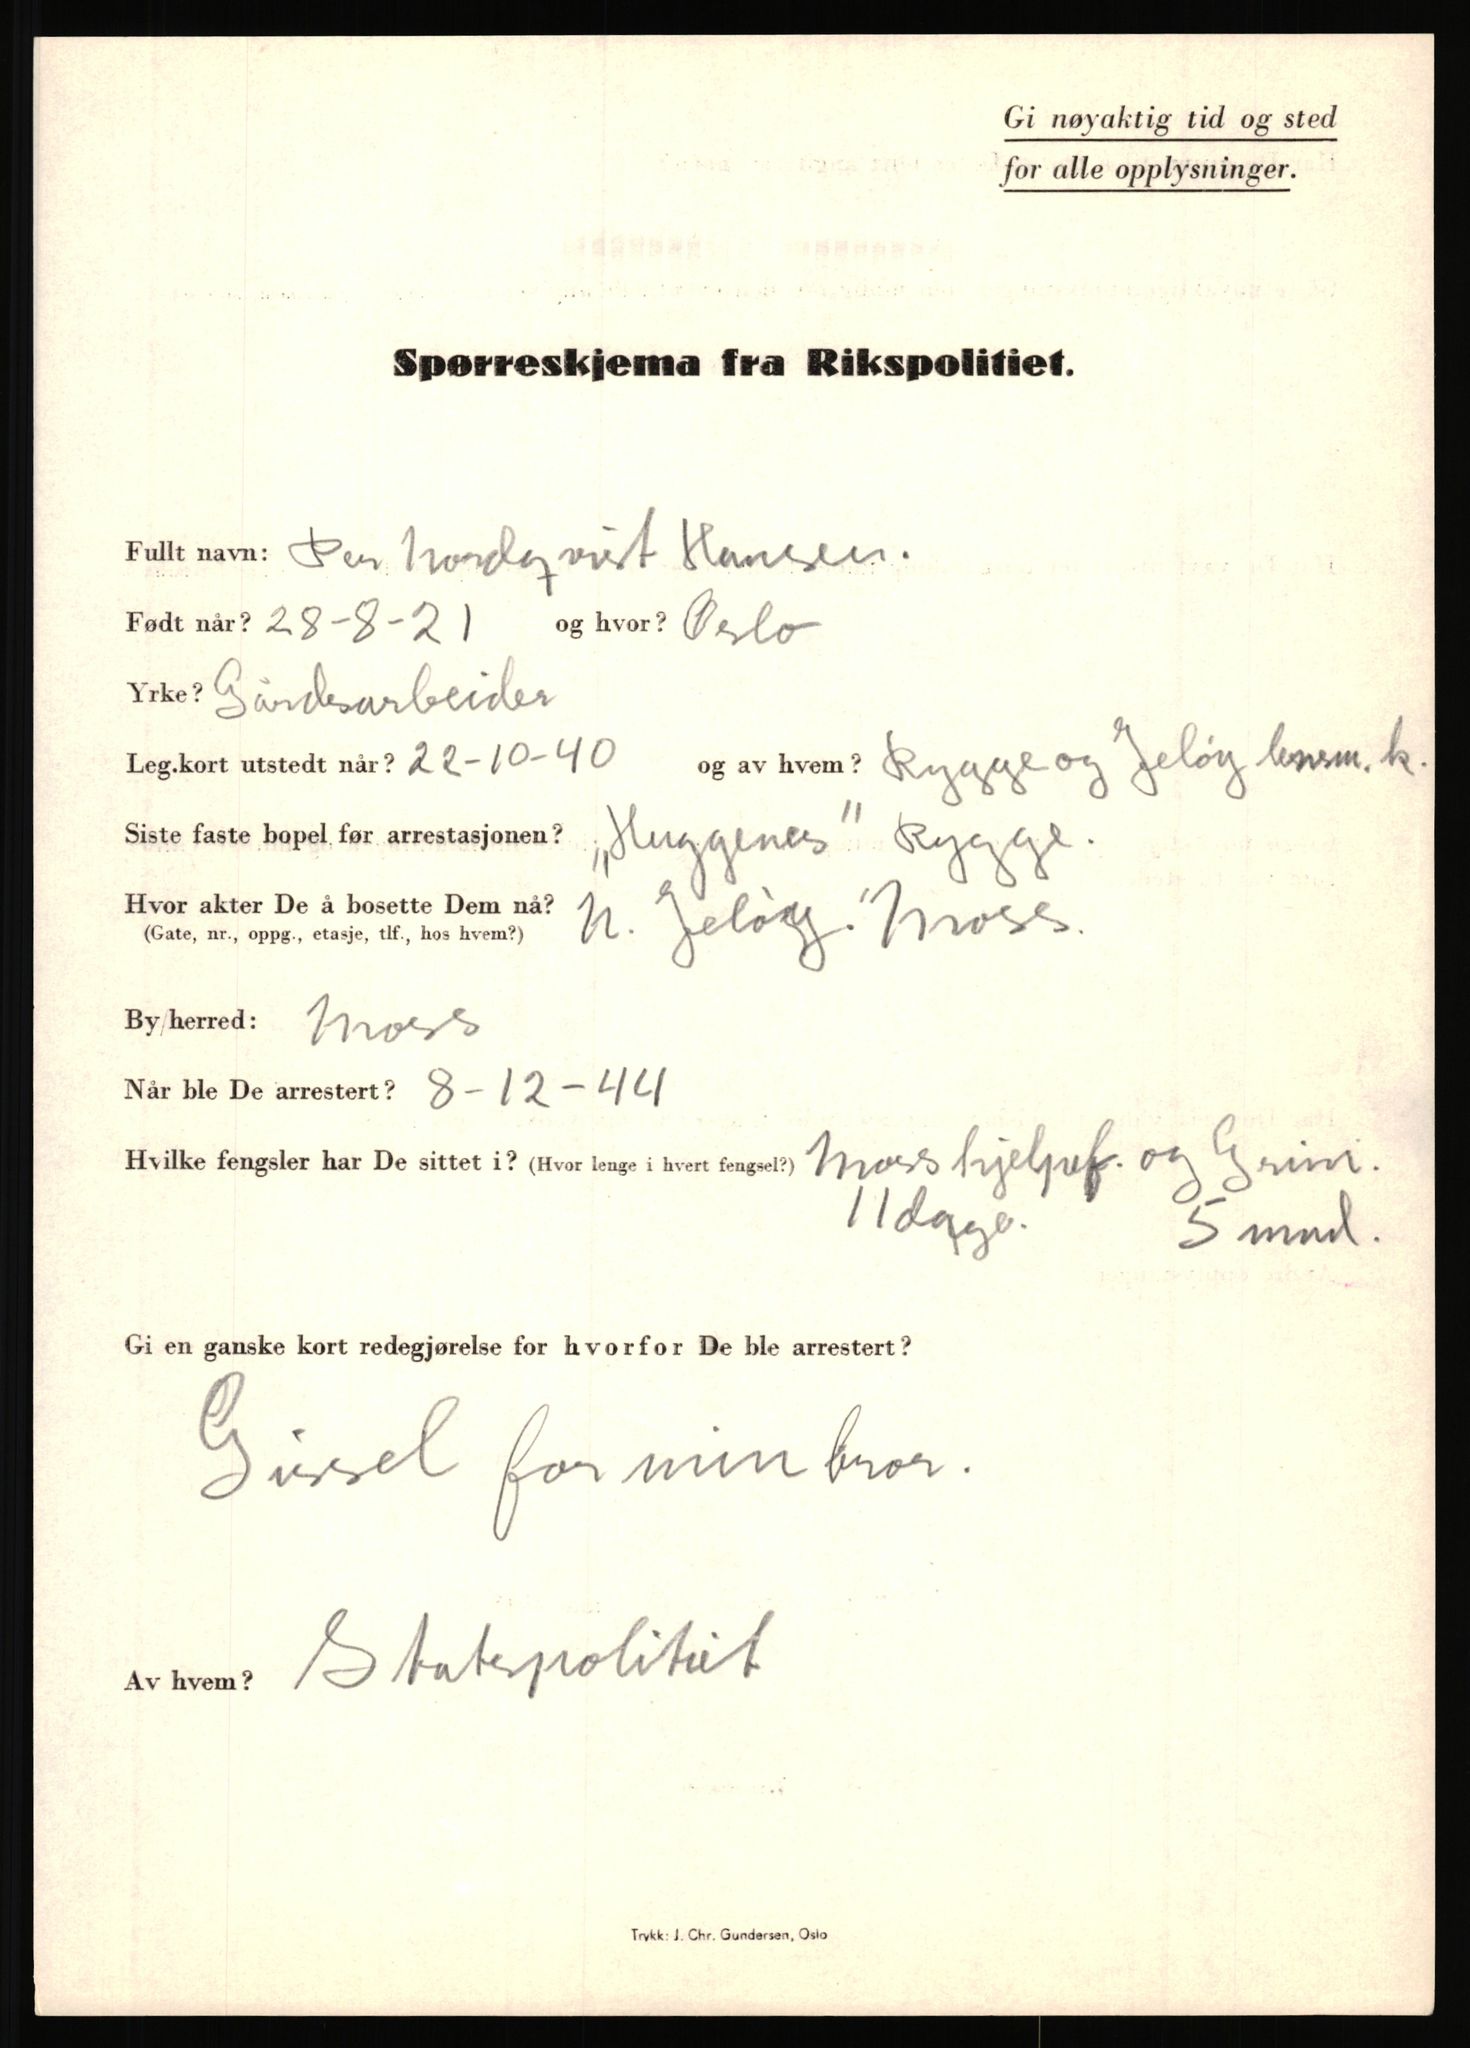 Gi nøyaktig tid og sted
for alle opplysninger.
Spørreskjema fra Rikspolitiet.
Fullt navn: Per Nordqvist Hansen.
Født når? 28-8-21 og hvor? Oslo
Yrke? Gårdsarbeider
Leg.kort utstedt når? 22-10-40 og av hvem? Rygge og Jeløy lensm. k.
Siste faste bopel før arrestasjonen? „Huggenes" Rygge.
Hvor akter De å bosette Dem nå? N. Jeløy. Moss.
(Gate, nr., oppg., etasje, tlf., hos hvem?)
By/herred: Moss
Når ble De arrestert? 8-12-44
Hvilke fengsler har De sittet i? (Hvor lenge i hvert fengsel?) Moss hjelpef. og Grini.
11 dage. 5 mnd.
Gi en ganske kort redegjørelse for hvorfor De ble arrestert?
Gissel for min bror.
Av hvem? Statspolitiet
Trykk: J. Chr. Gundersen, Oslo